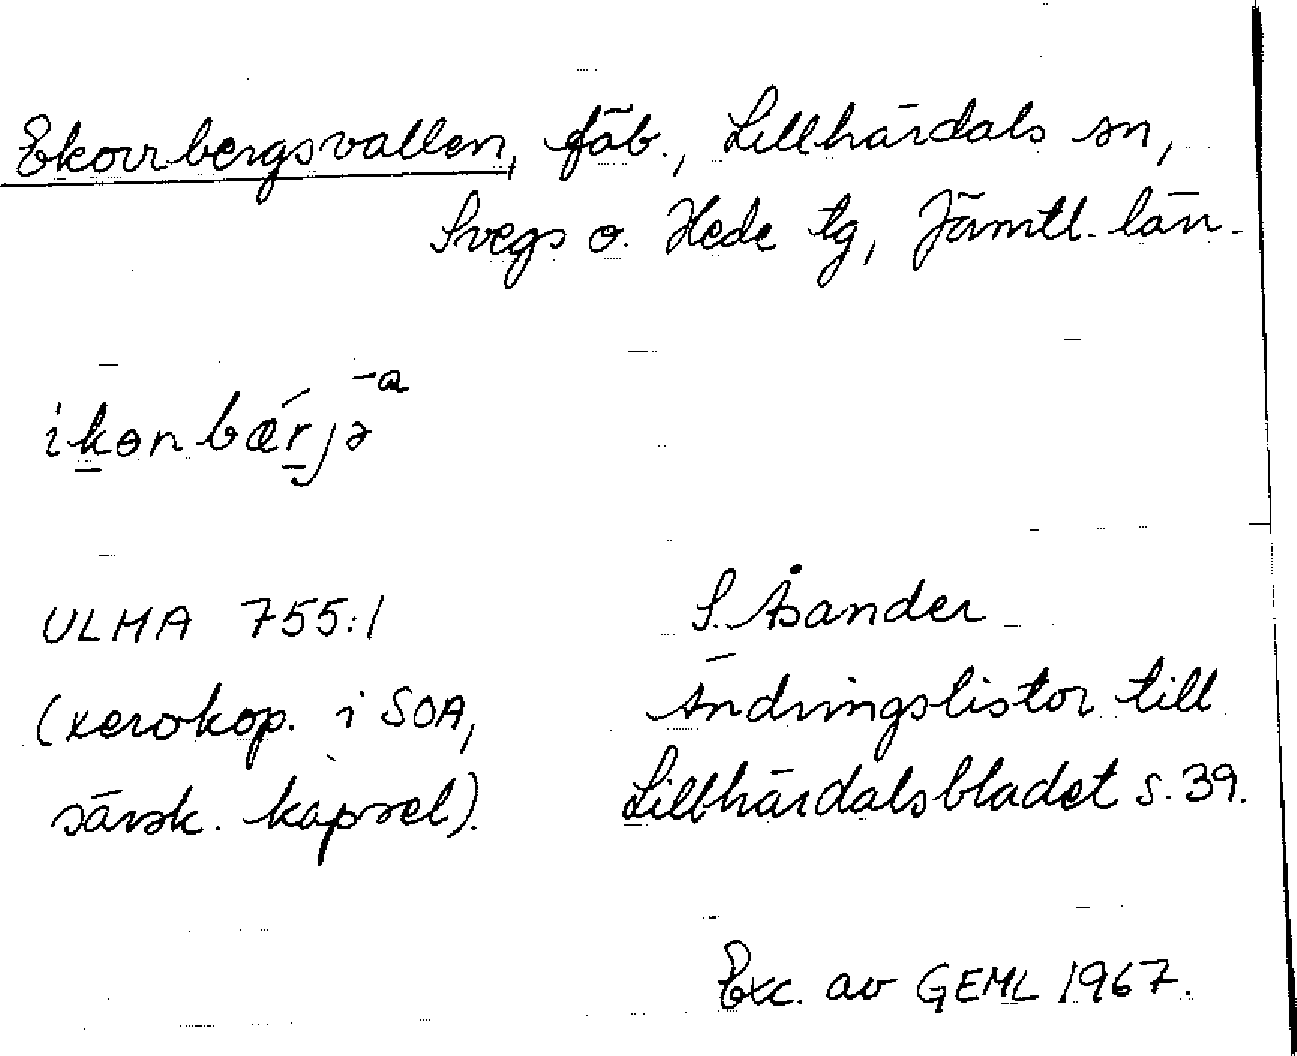 Ekorrbergsvallen, fäb., Lillhärdals sn,
Svegs o. Hede tg, Jämtl. län.
ikɵnbærjə -a
ULMA 755:1
(xerokop. i SOA,
särsk. kapsel).
S. Åsander
Ändringslistor till
Lillhärdalsbladet s. 39.
Exc. av GEML 1967.